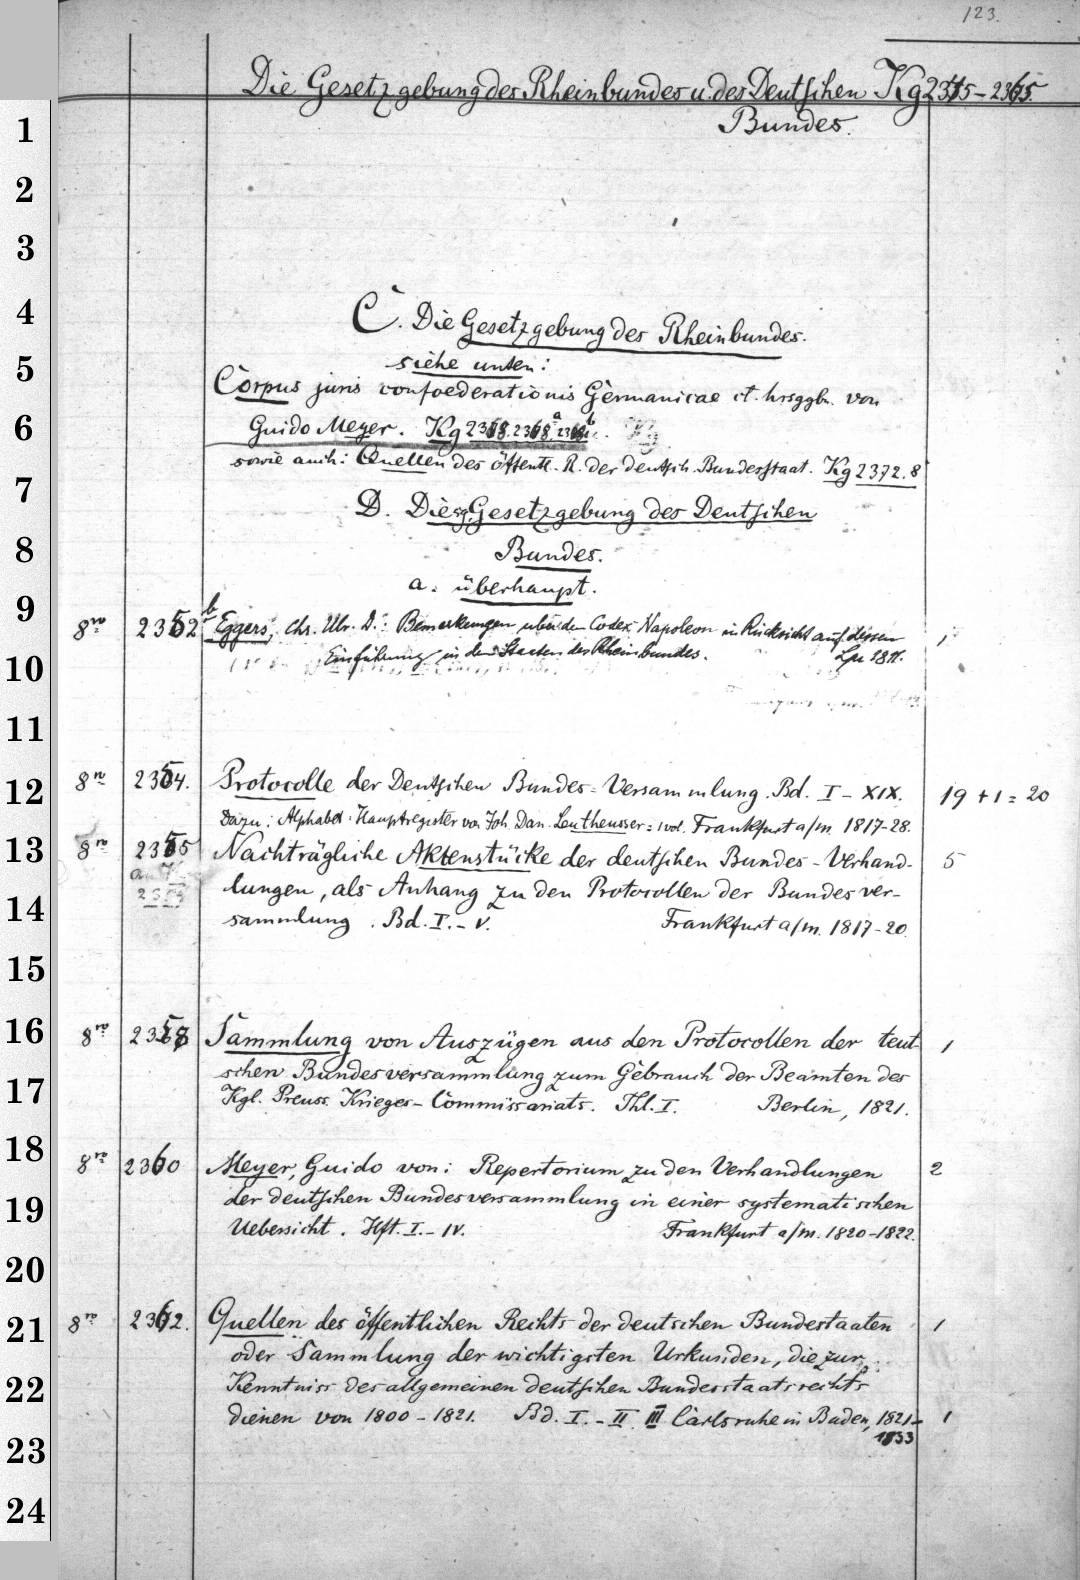 123.
Die Gesetzgebung des Rheinbundes u. des Deutschen Kg 2355-2365.
Bundes.
1
2
3
4 C. Die Gesetzgebung des Rheinbundes.
5 siehe unten:
Corpus juris confoederationis Germanicae ct. hrsggbn. von
6 Guido Meyer. Kg 2368. 2368a. 2368b
sowie auch: Quellen des öffentl. R. der deutsch. Bundesstaat. Kg 2372.8
7 D. Die Gesetzgebung des Deutschen
8 Bundes.
9 a. überhaupt.
8vo 2352b Eggers, Chr. Ulr. D.: Bemerkungen über den Codex Napoleon in Rücksicht auf dessen 1
10 Einführung in den Staaten des Rheinbundes. Lpz 1811.
11
12 8vo 2354. Protocolle der Deutschen Bundes=Versammlung. Bd. I-XIX. 19 + 1 = 20
Dazu: Alphabet. Hauptregister von Joh. Dan. Leutheusser = 1 vol. Frankfurt a/m. 1817-28.
13 8vo 2355 Nachträgliche Aktenstücke der deutschen Bundes-Verhand- 5
14 lungen, als Anhang zu den Protocollen der Bundesver-
sammlung. Bd. I.-V. Frankfurt a/m. 1817-20.
15
16 8vo 2358 Sammlung von Auszügen aus den Protocollen der teut- 1
schen Bundesversammlung zum Gebrauch der Beamten des
17 Kgl. Preuss. Krieges-Commissariats. Thl. I. Berlin, 1821.
18 8vo 2360 Meyer, Guido von: Repertorium zu den Verhandlungen 2
19 der deutschen Bundesversammlung in einer systematischen
Uebersicht. Hft. I.-IV. Frankfurt a/m. 1820-1822.
20
21 8vo 2362. Quellen des öffentlichen Rechts der deutschen Bundestaaten 1
oder Sammlung der wichtigsten Urkunden, die zur
22 Kenntniss des allgemeinen deutschen Bundesstaatsrechts
dienen von 1800-1821. Bd. I.-II. III Carlsruhe in Baden, 1821- 1
23 1833
24